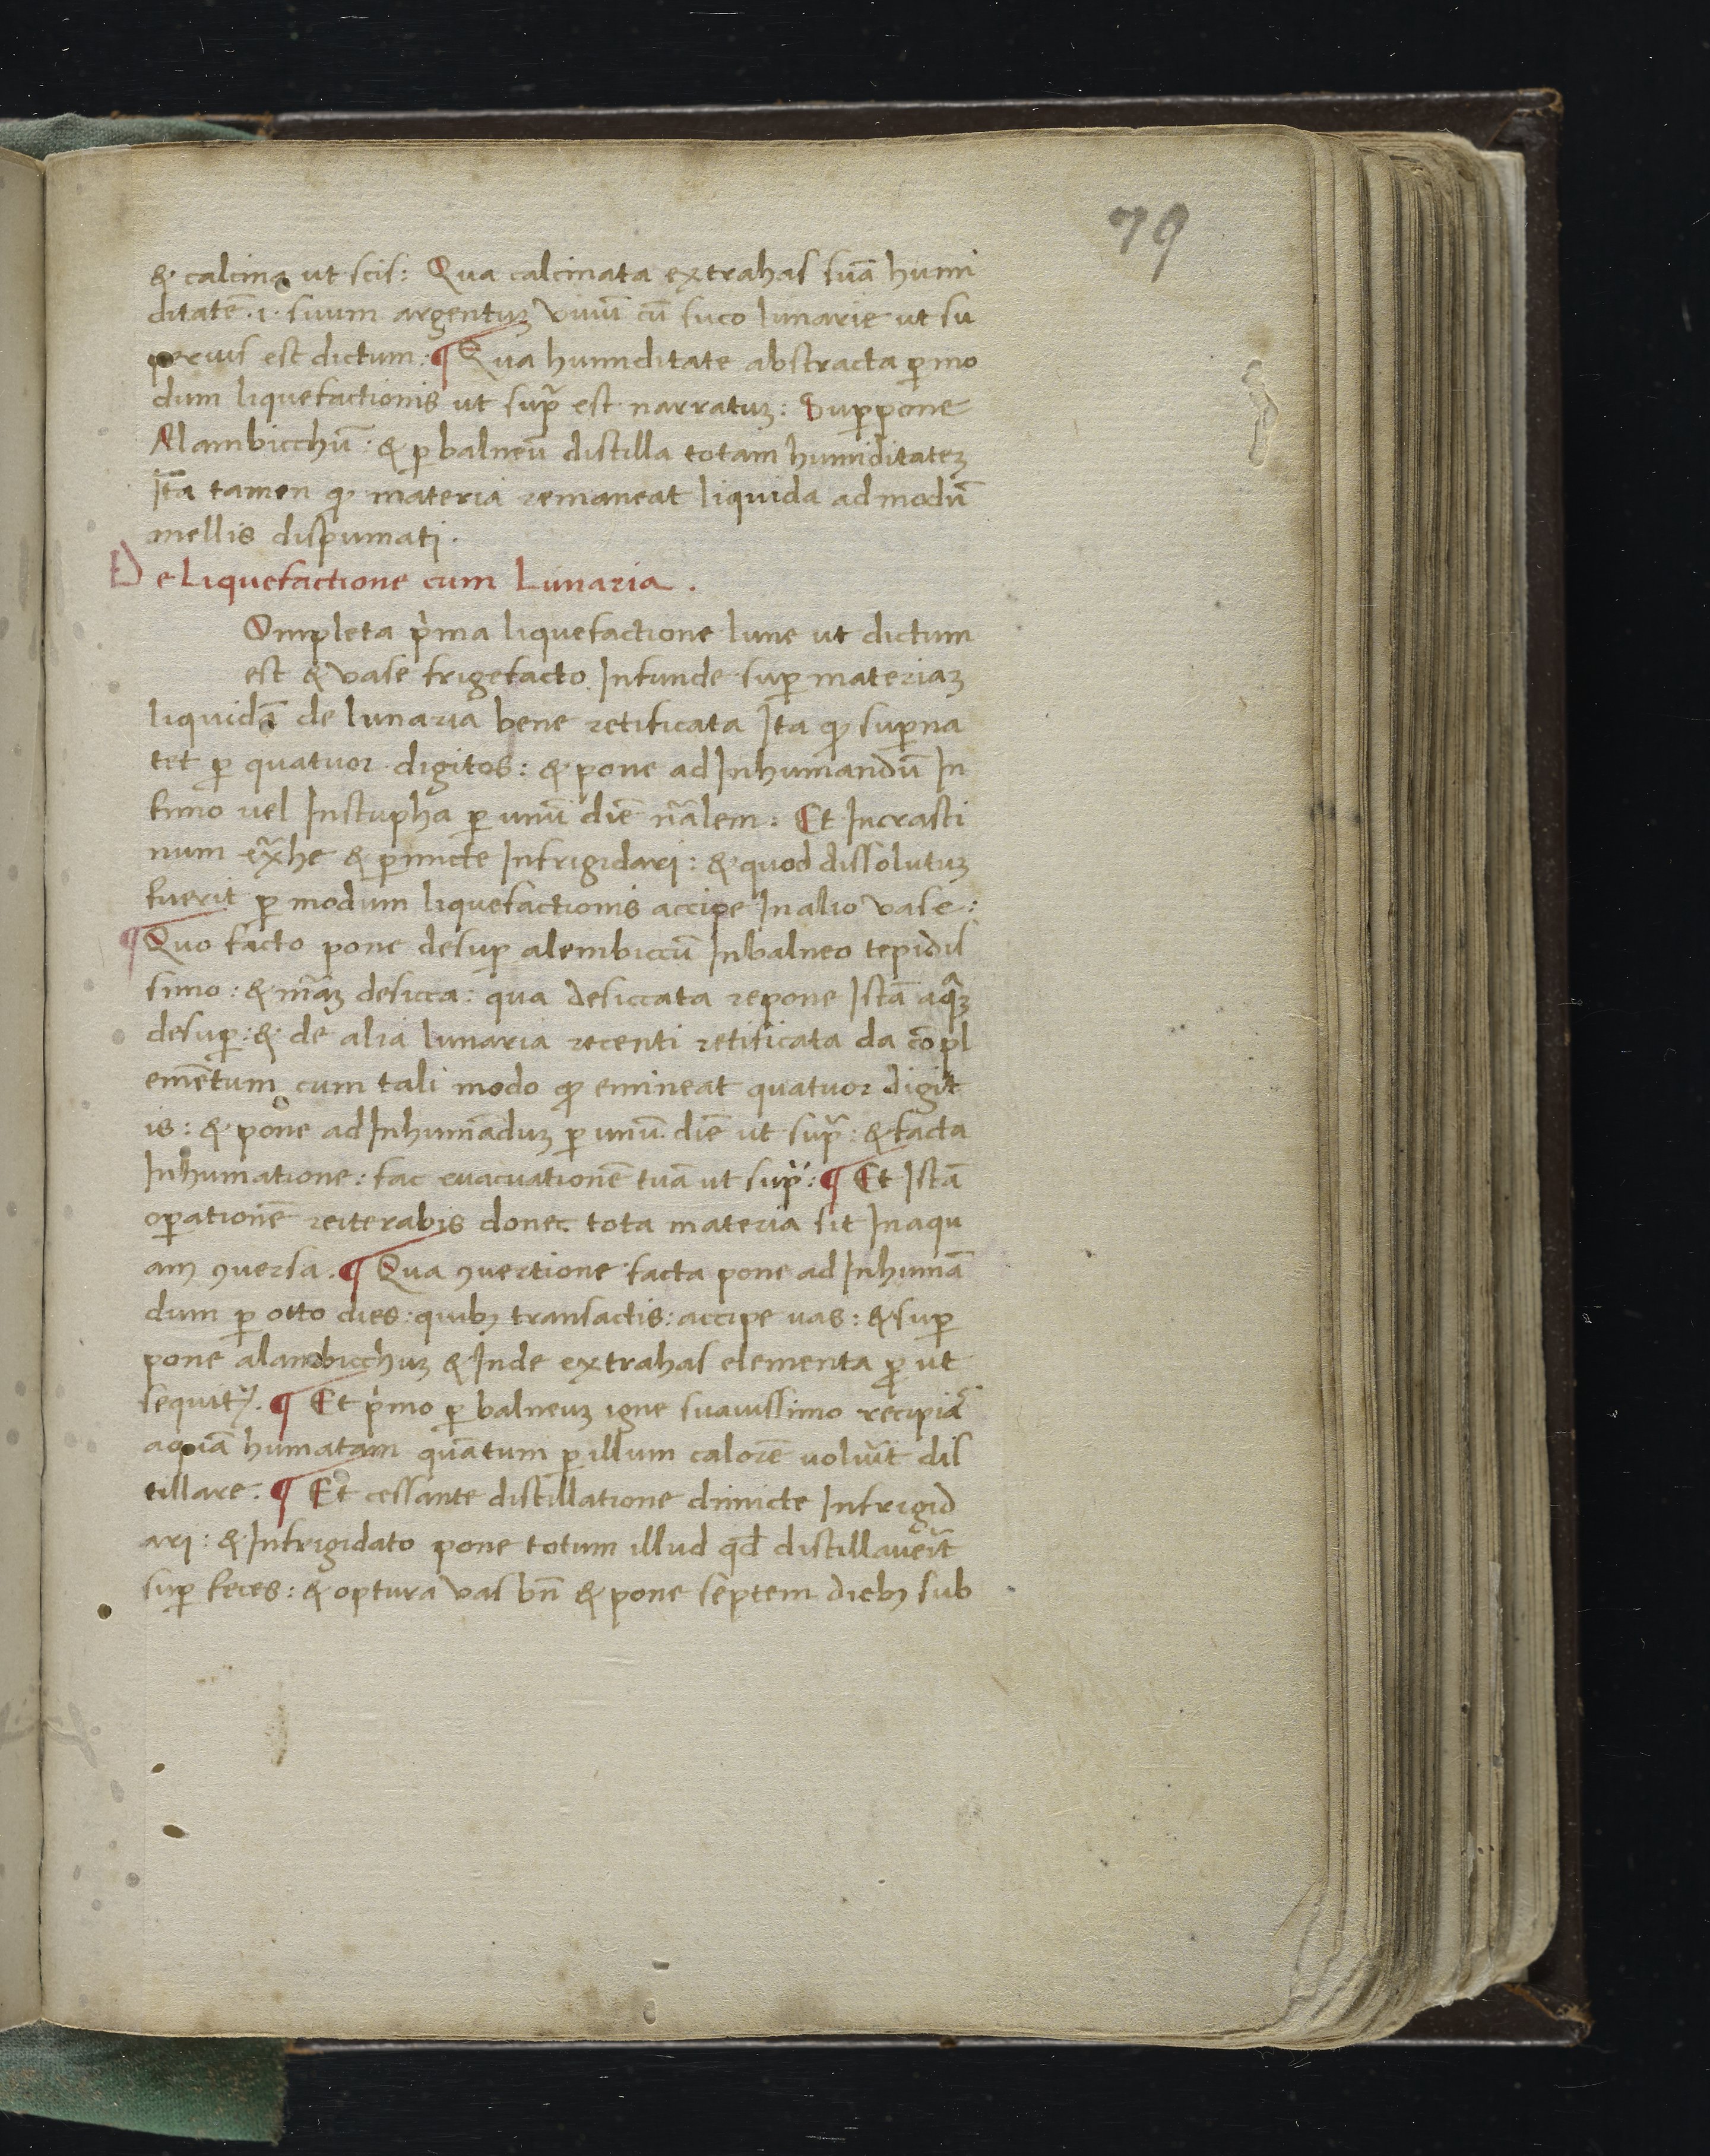 79
& calcina ut scis: Qua calcinata extrahas suā humi
ditatē .i. suum argentuꝫ vivū cū suco lunarie ut su
perius est dictum. ¶ Qua humiditate abstracta ꝑ mo
dum liquefactionis ut supᷓ est narratuꝫ: Suppone
Alambicchū & ꝑ balneū distilla totam humiditateꝫ
Ita tamen ꝙ materia remaneat liquida ad modū
mellis dispumati.
De Liquefactione cum Lunaria.
Ompleta pͥma liquefactione lune ut dictum
est & vase frigefacto Infunde suꝑ materiaꝫ
liquidā de lunaria bene retificata Ita ꝙ suꝑna
tet ꝑ quatuor digitos: & pone ad Inhumandū In
fimo vel In stupha ꝑ unū diē nr̄alem: Et In crasti
num exᷓhe & ꝑmicte Infrigidari: & quod dissolutuꝫ
fuerit ꝑ modum liquefactionis accipe In alio vase:
¶ Quo facto pone desuꝑ alembiccū In balneo tepidis
simo: & māꝫ desicca: qua desiccata repone Istā aquᷓꝫ
desuꝑ: & de alia lunaria recenti retificata da cōpl
emētum cum tali modo ꝙ emineat quatuor digit
is: & pone ad Inhumāduꝫ ꝑ unū diē ut supᷓ: & facta
Inhumatione: fac evacuationē tuā ut supᷓ: ¶ Et Istā
oꝑationē reiterabis donec tota materia sit In aqu
am ꝯversa. ¶ Qua ꝯvertione facta pone ad Inhumā
dum ꝑ otto dies: quibꝫ transactis: accipe vas: & suꝑ
pone alambicchuꝫ & Inde extrahas elementa ꝓut
sequit᷑. ¶ Et pͥmo ꝑ balneuꝫ igne suavissimo recipiā
aquā humatam quātum ꝑ illum calorē voluīt dis
tillare. ¶ Et cessante distillatione dimicte Infrigid
ari: & Infrigidato pone totum illud qd̄ distillaveīt
suꝑ feces: & optura vas bn̄ & pone septem diebꝫ sub